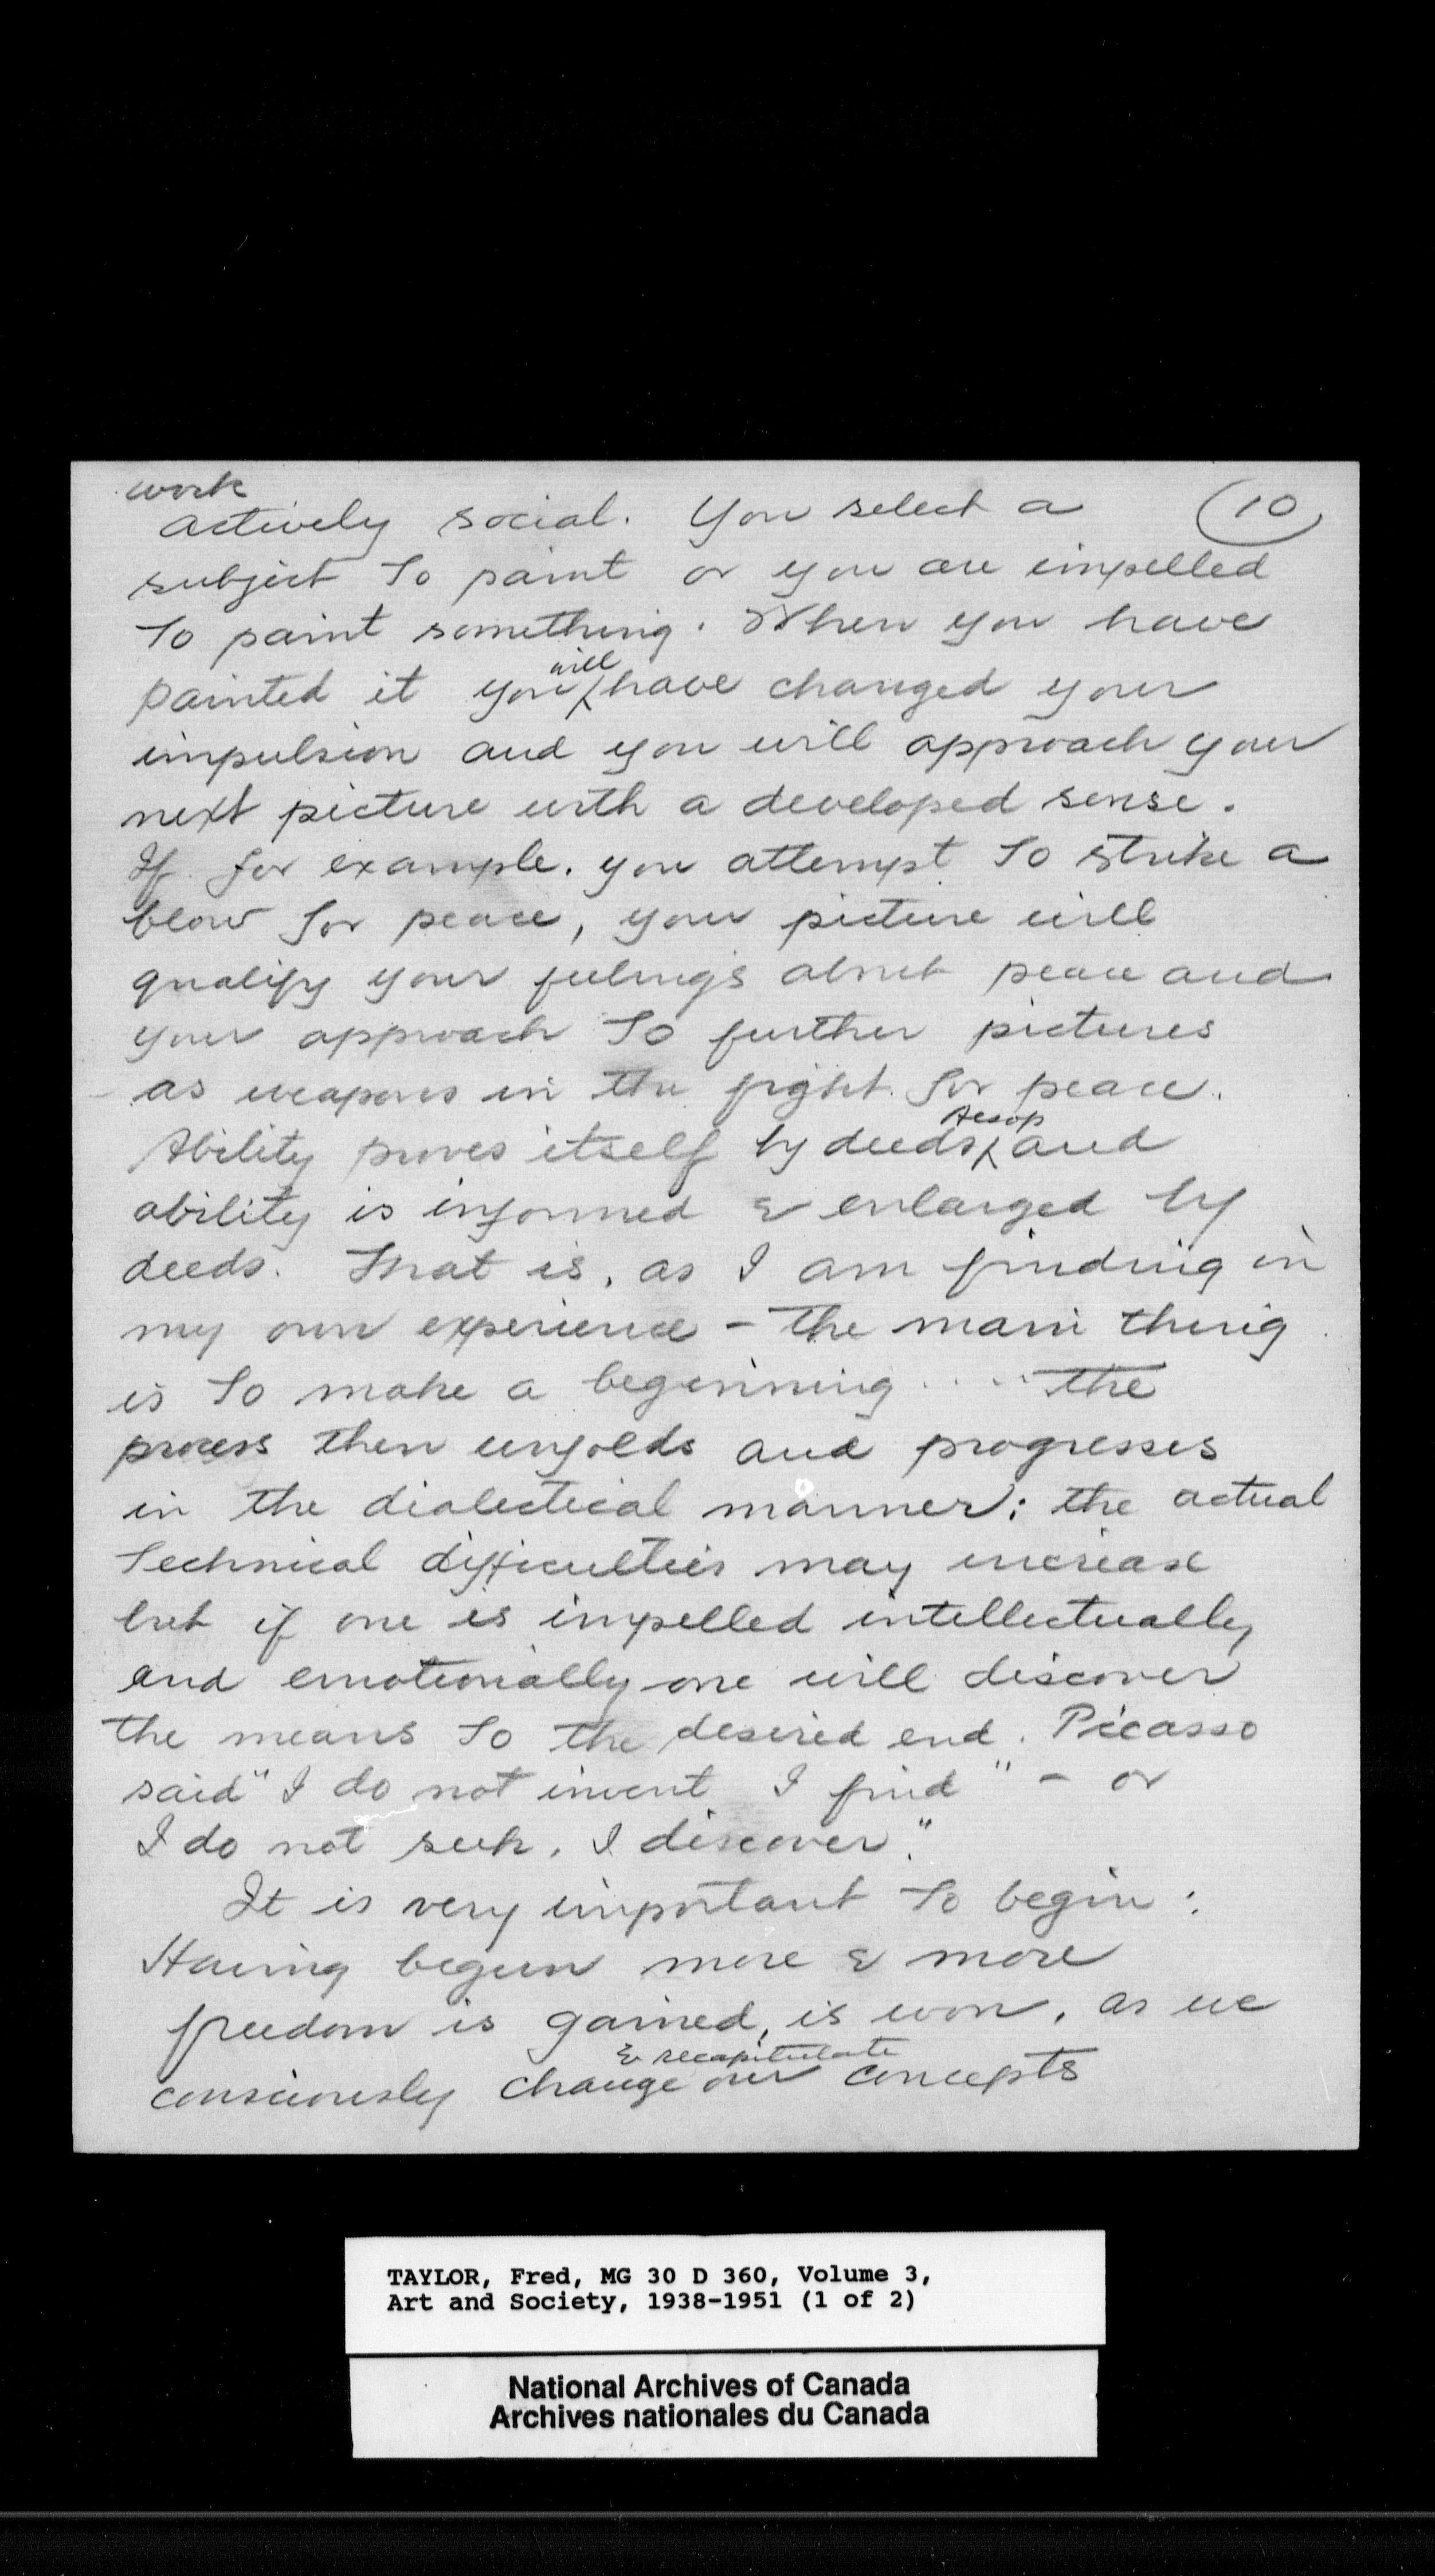 work
actively social. You select a (10)
subject to paint or you are impelled
to paint something. When you have
will
painted it you have changed your
impulsion and you will approach your
next picture with a developed sense.
If for example, you attempt to strike a
blow for peace, your picture will
qualify your feelings about peace and
your approach to further pictures
as weapons in the fight for peace.
Aesop
Ability proves itself by deeds, and
ability is informed & enlarged by
deeds. That is, as I am finding in
my own experience – the main thing
is to make a beginning .... the
process then unfolds and progresses
in the dialectical manner; the actual
technical difficulties may increase
but if one is impelled intellectually
and emotionally one will discover
the means to the desired end. Picasso
said "I do not invent I find" – or
I do not seek, I discover."
It is very important to begin:
Having begun more & more
freedom is gained, is won, as we
& recapitulate
consciously change our concepts
TAYLOR, Fred, MG 30 D 360, Volume 3,
Art and Society, 1938-1951 (1 of 2)
National Archives of Canada
Archives nationales du Canada